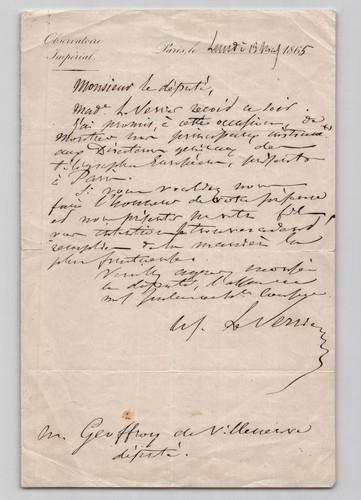 Observatoire
Impérial.
Paris, le Lundi 13 Mars 1865
Monsieur le député,
Made Le Verrier reçoit ce soir.
J'ai promis, à cette occasion, de
montrer nos principaux instruments
aux Directeurs généraux des
télégraphes Européens, présents
à Paris.
Si vous voulez nous
faire l'honneur de votre présence
et nous présenter
remplies de la manière la
plus fructueuse.
Veuillez agréer, monsieur
le député, l'assurance
de mes sentiments
Le Verrier
M. Geoffroy de Villeneuve
député.